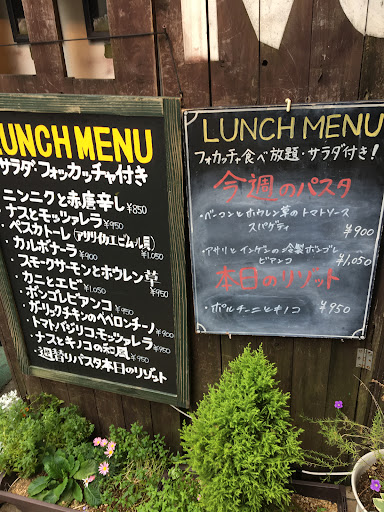 LUNCH MENU
サラダ・フォッカッチャ付き
ニンニクと赤唐辛し ¥850
・ナスとモッツァレラ ¥950
・ペスカトーレ(アサリイカエビムール貝) ¥1,050
・カルボナーラ ¥900
・スモークサーモンとホウレン草 ¥950
・カニとエビ ¥1,050
・ボンゴレビアンコ ¥950
・ガーリックチキンのペペロンチーノ ¥900
・トマトバジリコ、モッツァレラ ¥950
・ナスとキノコの和風 ¥950
・週替りパスタ本日のリゾット
LUNCH MENU
フォカッチャ食べ放題・サラダ付き!
今週のパスタ
・ベーコンとホウレン草のトマトソース
スパゲティ ¥900
・アサリとインゲンの冷製ボンゴレ
ビアンコ ¥1,050
本日のリゾット
・ポルチーニとキノコ ¥950